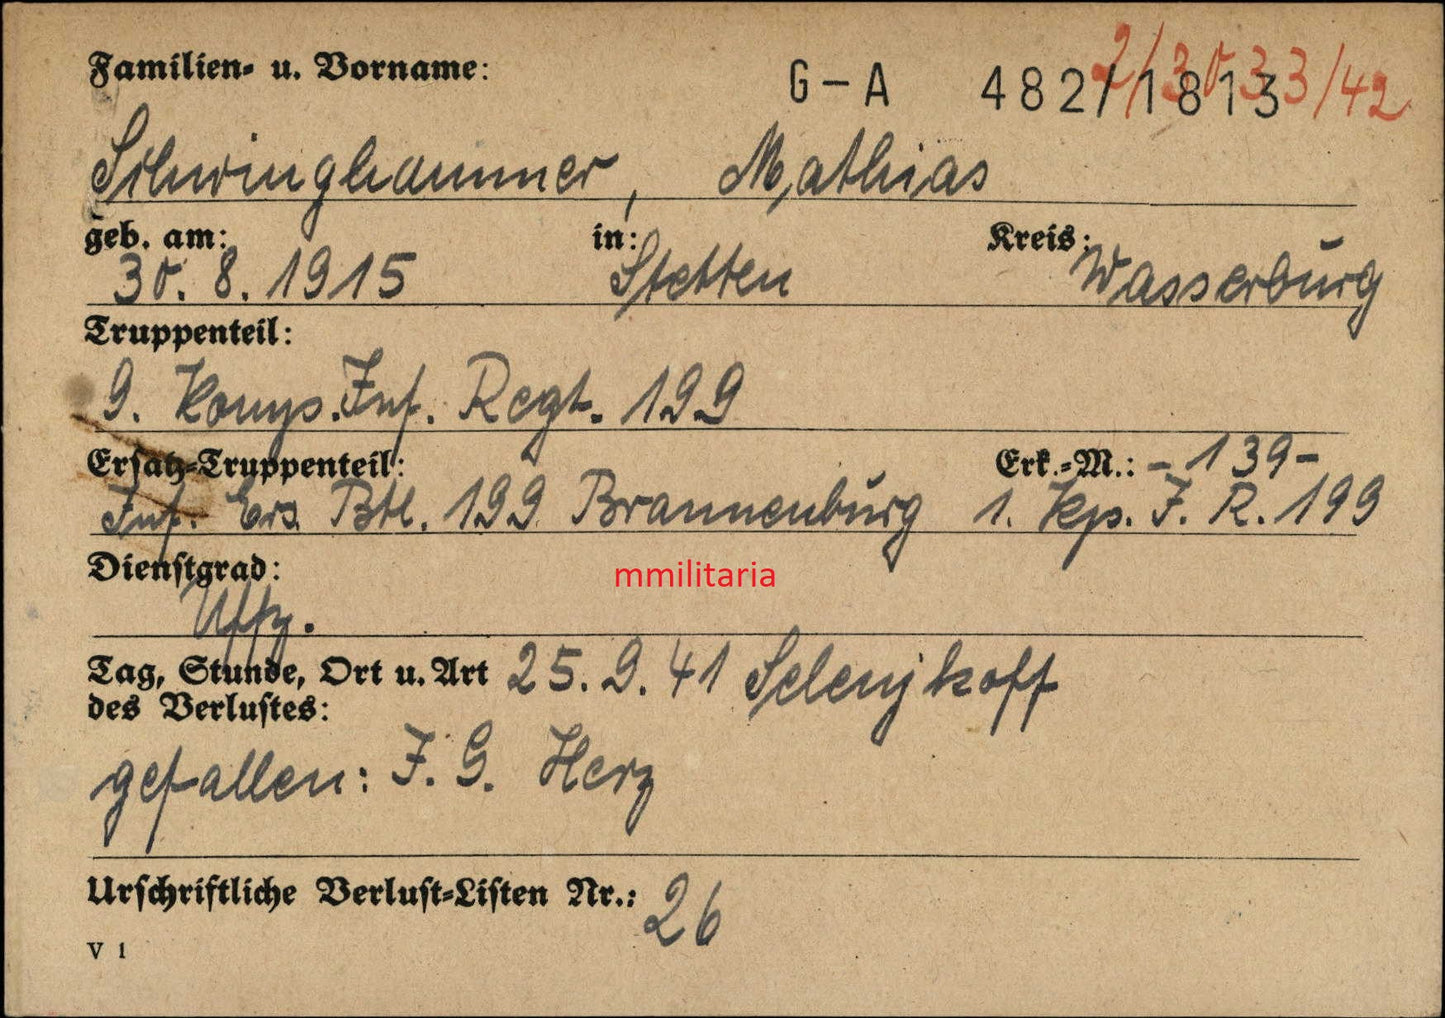 Familien- u. Vorname:
G-A 482/1813
2/3033/42
Schwinghammer, Mathias
geb. am: in: Kreis:
30. 8. 1915 Stetten Wasserburg
Truppenteil:
9. Komp. Inf. Regt. 199
Ersatz-Truppenteil: Erk.-M.: - 139-
Inf. Ers. Btl. 199 Brannenburg 1. Kp. I. R. 199
Dienstgrad:
mmilitaria
Uffz.
Tag, Stunde, Ort u. Art 25. 9. 41 Selenj koff
des Verlustes:
gefallen: I. G. Herz
Urschriftliche Verlust-Listen Nr.: 26
V 1